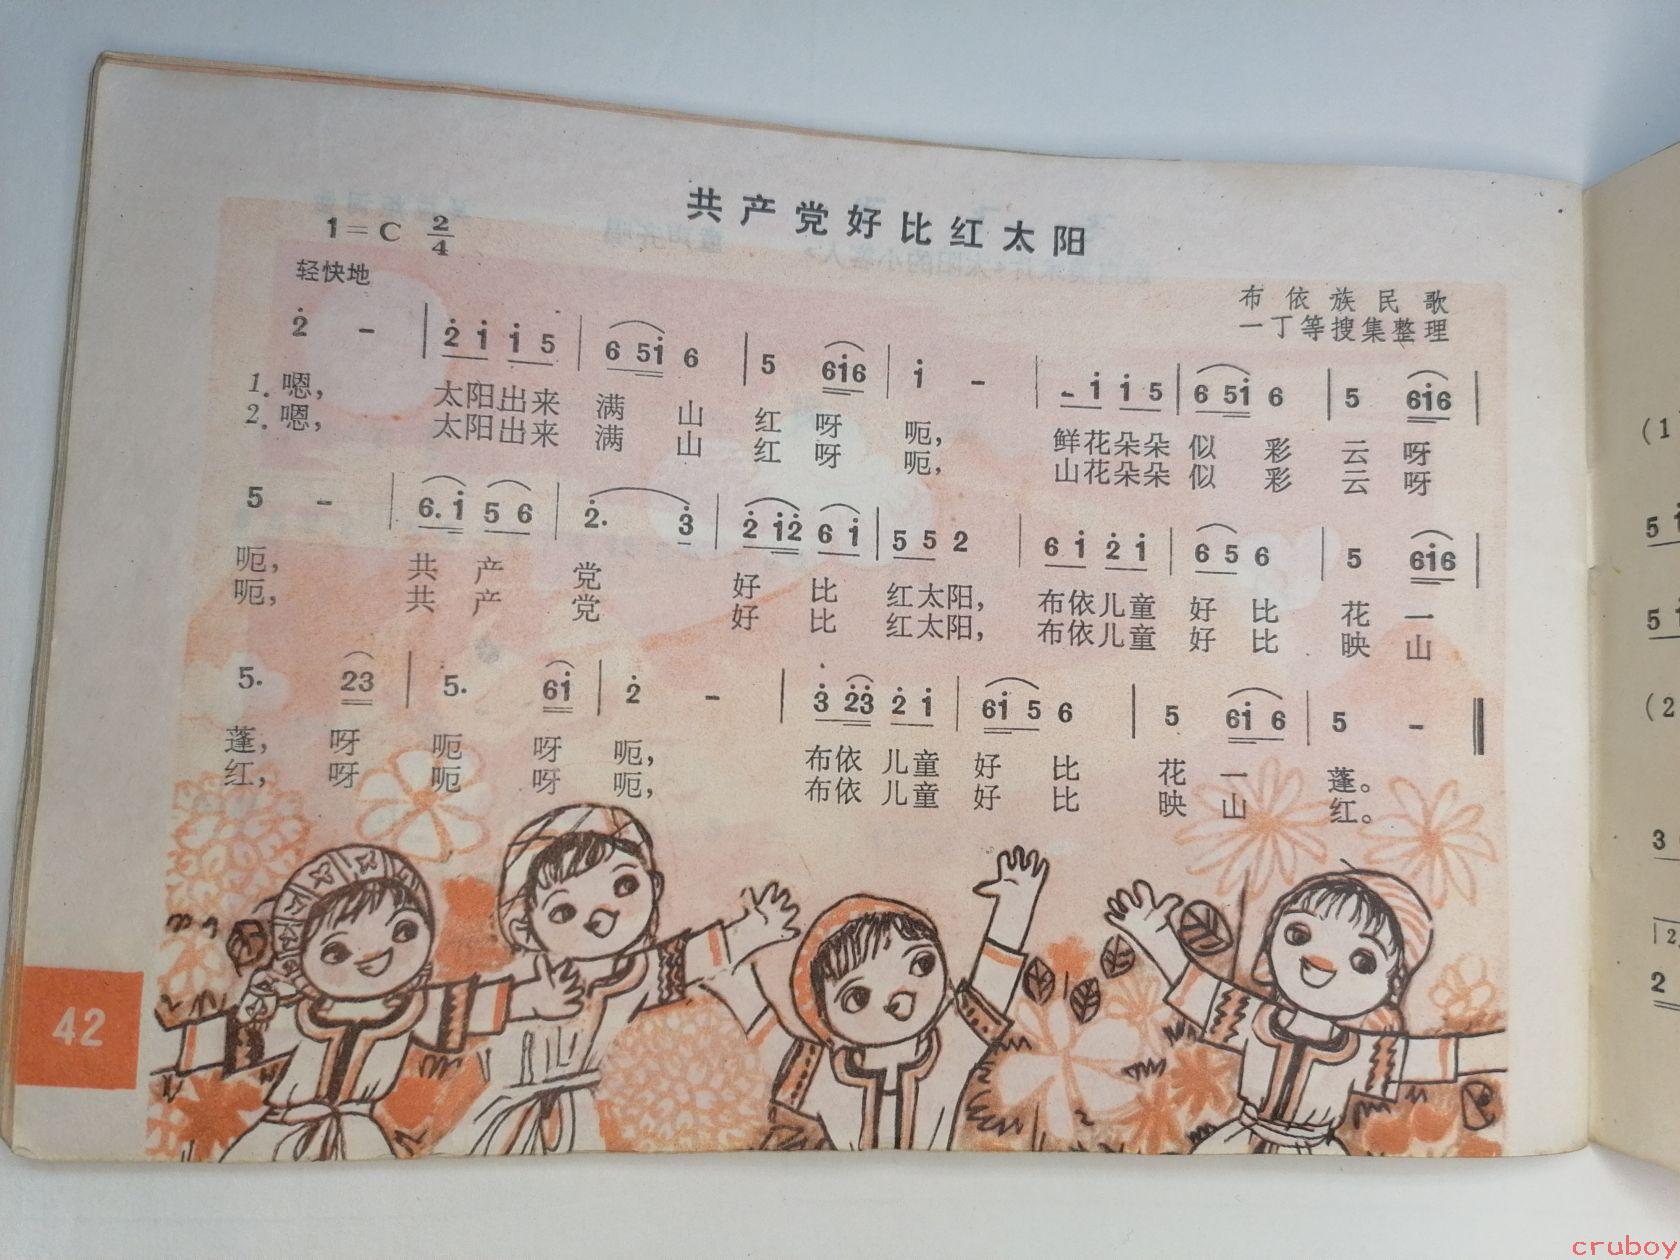 共产党好比红太阳
1=C 2/4
轻快地
布依族民歌
一丁等搜集整理
2̇ - | 2̇ 1̇ 1̇ 5 | 6 51̇ 6 | 5 61̇6 | 1̇ - | - 1̇ 1̇ 5 | 6 51̇ 6 | 5 61̇6 |
1. 嗯, 太阳出来 满 山 红 呀 呃, 鲜花朵朵 似 彩 云 呀
2. 嗯, 太阳出来 满 山 红 呀 呃, 山花朵朵 似 彩 云 呀
5 - | 6. 1̇ 5 6 | 2̇. 3̇ | 2̇ 1̇2̇ 6 1̇ | 5 5 2 | 6 1̇ 2̇ 1̇ | 6 5 6 | 5 61̇6 |
呃, 共 产 党 好 比 红太阳, 布依儿童 好 比 花 一
呃, 共 产 党 好 比 红太阳, 布依儿童 好 比 映 山
5. 23 | 5. 61̇ | 2̇ - | 3̇ 2̇3̇ 2̇ 1̇ | 61̇ 5 6 | 5 61̇ 6 | 5 - ‖
蓬, 呀 呃 呀 呃, 布依 儿童 好 比 花 一 蓬。
红, 呀 呃 呀 呃, 布依 儿童 好 比 映 山 红。
42
cruboy